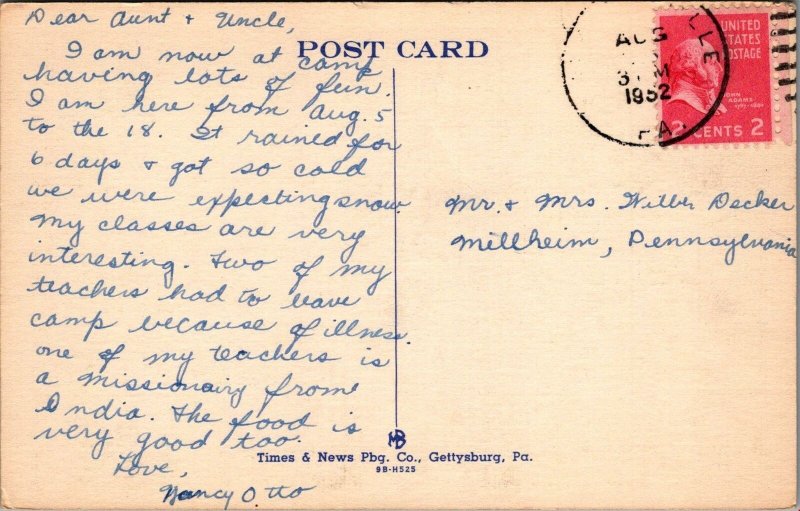 Dear Aunt & Uncle,
I am now at camp
having lots of fun.
I am here from Aug. 5
to the 18. It rained for
6 days & got so cold
we were expecting snow.
My classes are very
interesting. Two of my
teachers had to leave
camp because of illness.
one of my teachers is
a missionairy from
India. The food is
very good too.
Love,
Nancy Otto
POST CARD
LLE
AUG
3 PM
1952
PA.
UNITED
STATES
POSTAGE
JOHN
ADAMS
1797-1801
2 CENTS 2
Mr. & Mrs. Wilbr Decker
Millheim, Pennsylvania
Times & News Pbg. Co., Gettysburg, Pa.
9B-H525